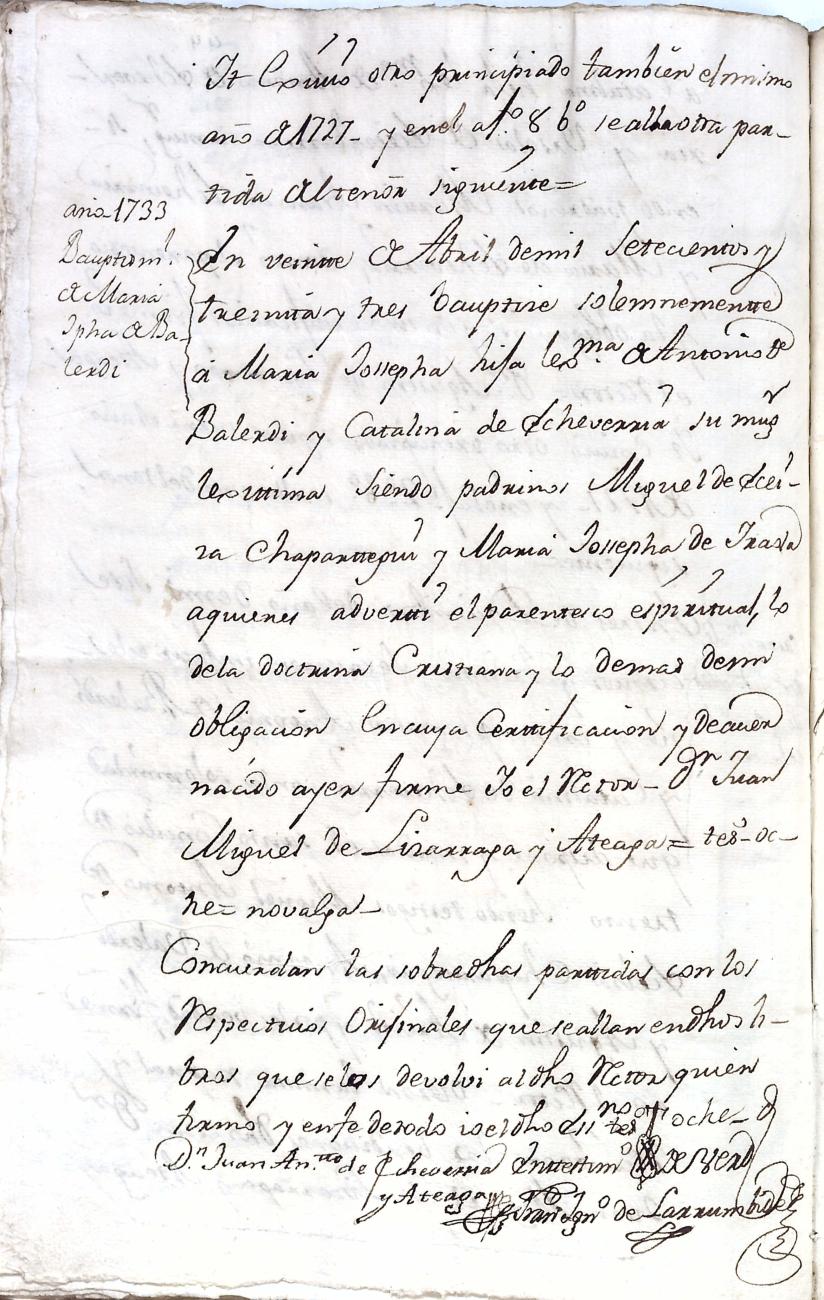 It Cximio otro principiado tambien el mismo
año de 1727- y en el af.º 8 bº se alla otra par-
tida del tenor siguiente=
año-1733
Bauptism.º
de Maria
Jpha de Ba-
lerdi
En veinte de Abril de mil Setecientos y
treinta y tres bauptice solemnemente
á Maria Jossepha hija lexma de Antonio de
Balerdi y Catalina de Echeverria su mug.r
lexittima siendo padrinos Miguel de
Chaparttegui y Maria Jossepha de
aquienes advertti el parentesco espiritual, lo
dela doctrina Cristiana y lo demas demi
obligacion Encuya Certtificacion y de aver
nacido ayer firme Yo el Rector- Dn Juan
Miguel de Lizarraga y Ateaga= tes-oc-
he= no valga-
Concuerdan las sobredhas parttidas con los
Respectivos Orijinales que se allan en dhos li-
bros que selos devolvi al dho Rector quien
firmo y enfe de todo io el dho esno tes oche-
D.n Juan An.tto de Echeverria Enttestim.º de Verd
y Ateaga
Fran Ignº de Larrumbide